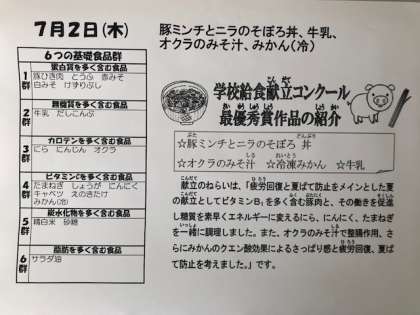 7月2日(木)
豚ミンチとニラのそぼろ丼、牛乳、
オクラのみそ汁、みかん(冷)
6つの基礎食品群
1群
蛋白質を多く含む食品
豚ひき肉 とうふ 赤みそ
白みそ けずりぶし
2群
無機質を多く含む食品
牛乳 だしにんぶ
3群
カロテンを多く含む食品
にら にんじん オクラ
4群
ビタミンCを多く含む食品
たまねぎ しょうが にんにく
キャベツ えのきたけ
みかん(冷)
5群
炭水化物を多く含む食品
精白米 砂糖
6群
脂肪を多く含む食品
サラダ油
学校給食献立コンクール
最優秀賞作品の紹介
☆豚ミンチとニラのそぼろ丼
☆オクラのみそ汁 ☆冷凍みかん ☆牛乳
献立のねらいは、「疲労回復と夏ばて防止をメインとした夏
の献立としてビタミンB₁を多く含む豚肉と、その働きを促進
し糖質を素早くエネルギーに変えるにら、にんにく、たまねぎ
を一緒に調理しました。また、オクラのみそ汁で整腸作用、さ
らにみかんのクエン酸効果によるさっぱり感と疲労回復、夏ば
て防止を考えました。」です。